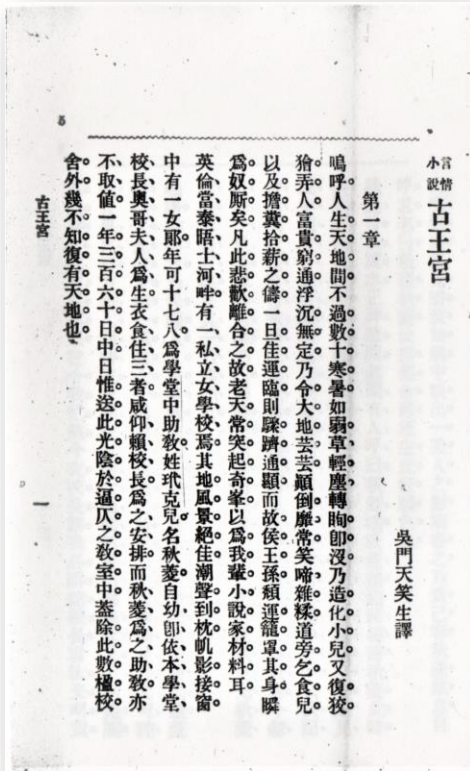 言情小說
古王宮
吳門天笑生譯
第一章
嗚呼人生天地間不過數十寒暑如弱草輕塵轉眴卽沒乃造化小兒又復狡
獪弄人富貴窮通浮沉無定乃令大地芸芸顚倒靡常笑啼雜糅道旁乞食兒
以及擔糞拾薪之儔一旦佳運臨則驟躋通顯而故侯王孫頹運籠罩其身瞬
爲奴厮矣凡此悲歡離合之故老天常突起奇峯以爲我輩小說家材料耳
英倫當泰晤士河畔有一私立女學校焉其地風景絕佳潮聲到枕帆影接窗
中有一女郞年可十七八爲學堂中助敎姓玳克兒名秋菱自幼卽依本學堂
校長奧哥夫人爲生衣食住三者咸仰賴校長爲之安排而秋菱爲之助敎亦
不取値一年三百六十日中日惟送此光陰於逼仄之敎室中蓋除此數楹校
舍外幾不知復有天地也
古王宮
一
5